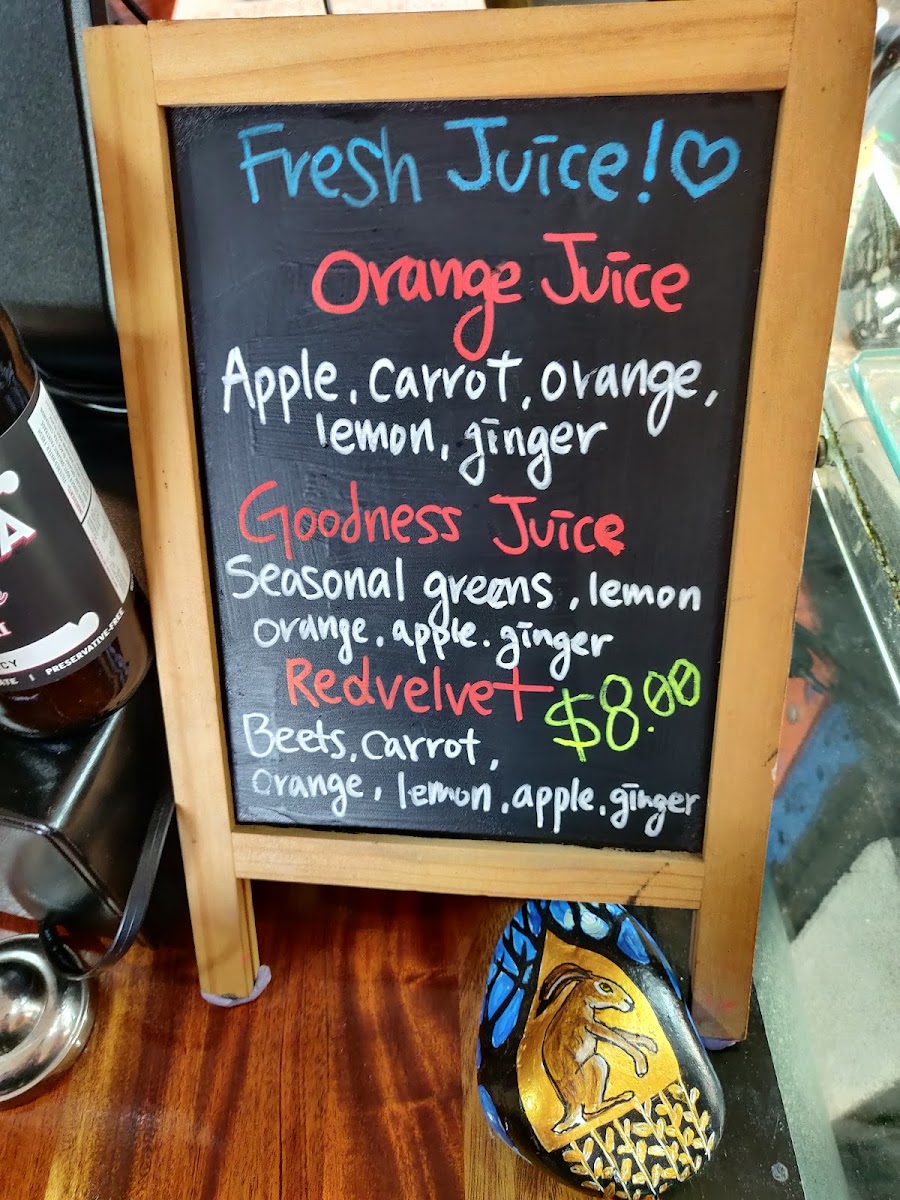 Fresh Juice! ♡
Orange Juice
Apple, carrot, orange,
lemon, ginger
Goodness Juice
Seasonal greens, lemon
orange, apple, ginger
Redvelvet $8.00
Beets, carrot,
orange, lemon, apple, ginger
A
CY
PRESERVATIVE-FREE